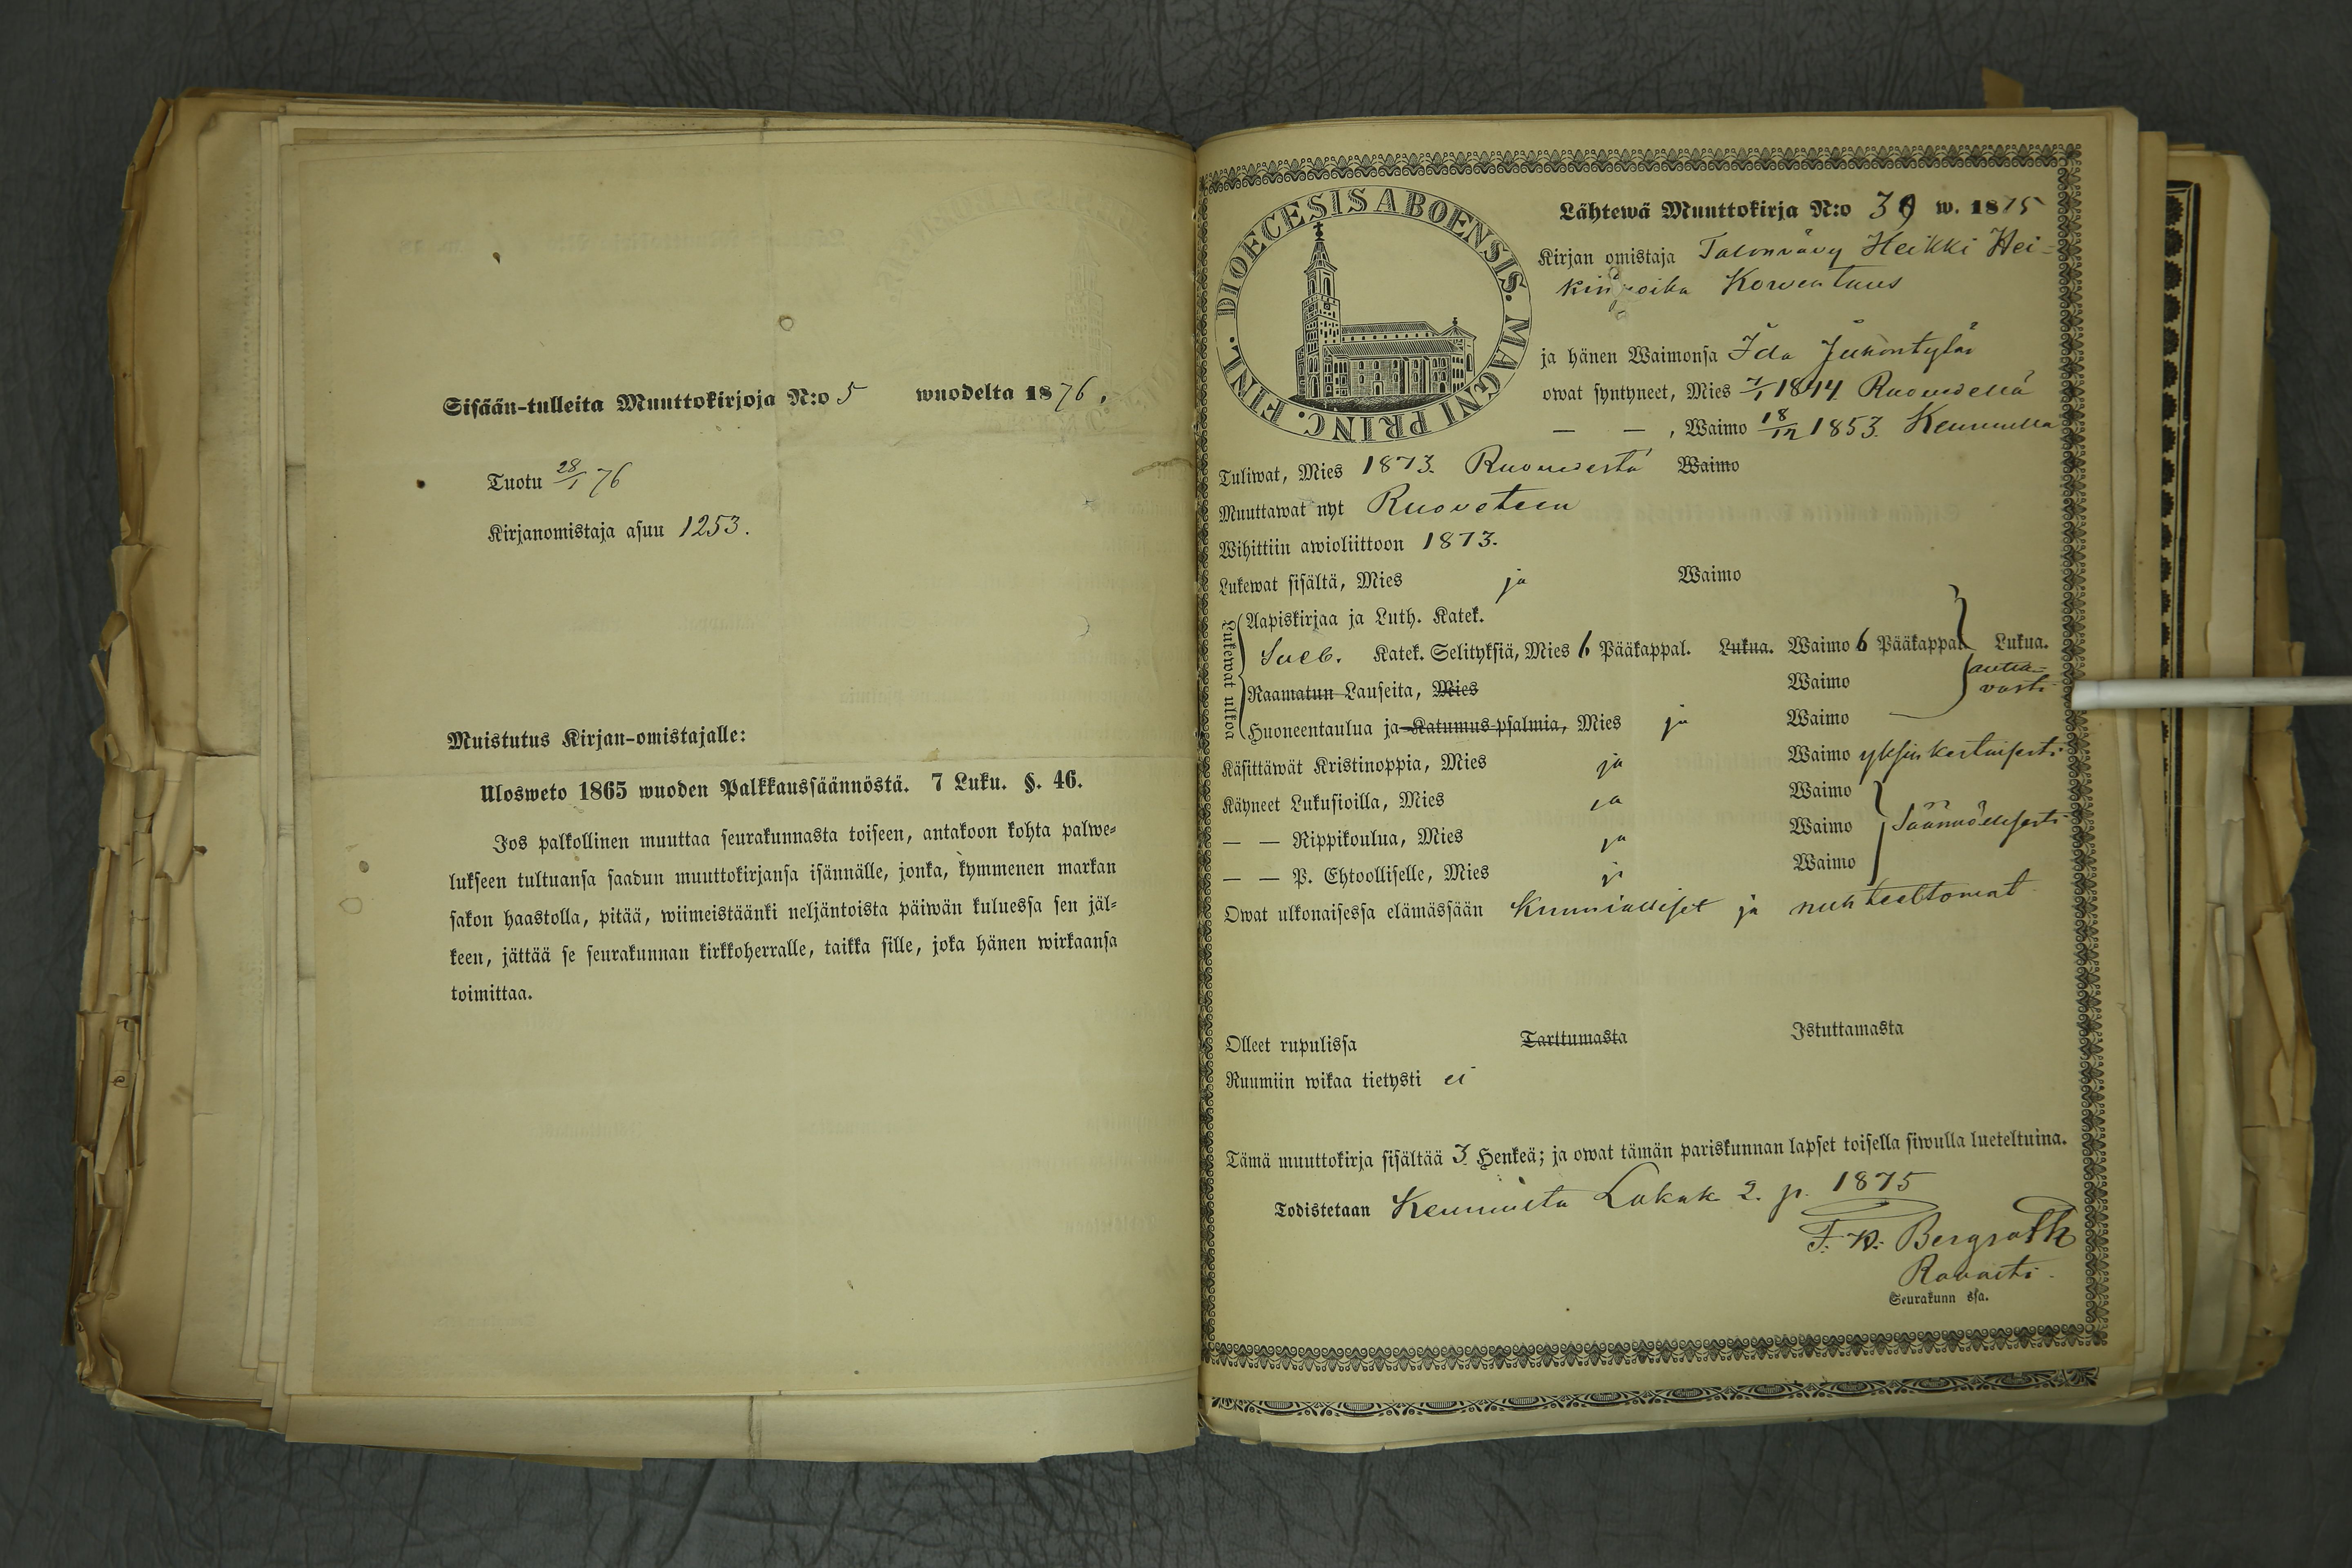 Sisään-tulleita Muuttokirjoja N:o 5 wuodelta 1876.
Tuotu 28/1 76
Kirjanomistaja asuu 1253.
Muistutus Kirjan-omistajalle:
Ulosweto 1865 wuoden Palkkaussäännöstä. 7 Luku. §. 46.
Jos palkollinen muuttaa seurakunnasta toiseen, antakoon kohta palwe-
lukseen tultuansa saadun muuttokirjansa isännälle, jonka, kymmenen markan
sakon haastolla, pitää, wiimeistäänki neljäntoista päiwän kuluessa sen jäl-
keen, jättää se seurakunnan kirkkoherralle, taikka sille, joka hänen wirkaansa
toimittaa.
DIOECESIS ABOENSIS. MAGNI PRINC. FINL.
Lähtewä Muuttokirja N:o 39 w. 1875
Kirjan omistaja Talonvävy Heikki Hei-
kinpoika Korventaus
ja hänen Waimonsa Ida
owat syntyneet, Mies 7/1 1844 Ruovedellä
— — , Waimo 18/12 1853. Keuruulla
Tuliwat, Mies 1873. Ruovedestä Waimo
Muuttawat nyt Ruoveteen
Wihittiin awioliittoon 1873.
Lukewat sisältä, Mies ja Waimo
Lukewat ulkoa
Aapiskirjaa ja Luth. Katek.
Sveb. Katek. Selityksiä, Mies 6 Pääkappal. Lukua. Waimo 6 Pääkappal. Lukua.
Raamatun Lauseita, Mies Waimo autta-
vasti
Huoneentaulua ja Katumus-psalmia, Mies ja Waimo
Käsittäwät Kristinoppia, Mies ja Waimo yksinkertaisesti
Käyneet Lukusioilla, Mies ja Waimo
— — Rippikoulua, Mies ja Waimo Säännöllisesti
— — P. Ehtoolliselle, Mies ja Waimo
Owat ulkonaisessa elämässään Kunnialliset ja nuhteettomat
Olleet rupulissa Tarttumasta Istuttamasta
Ruumiin wikaa tietysti ei
Tämä muuttokirja sisältää 3 Henkeä; ja owat tämän pariskunnan lapset toisella siwulla lueteltuina.
Todistetaan Keuruulta Lokak 2. p. 1875
Bergroth
Rovasti.
Seurakunn ssa.